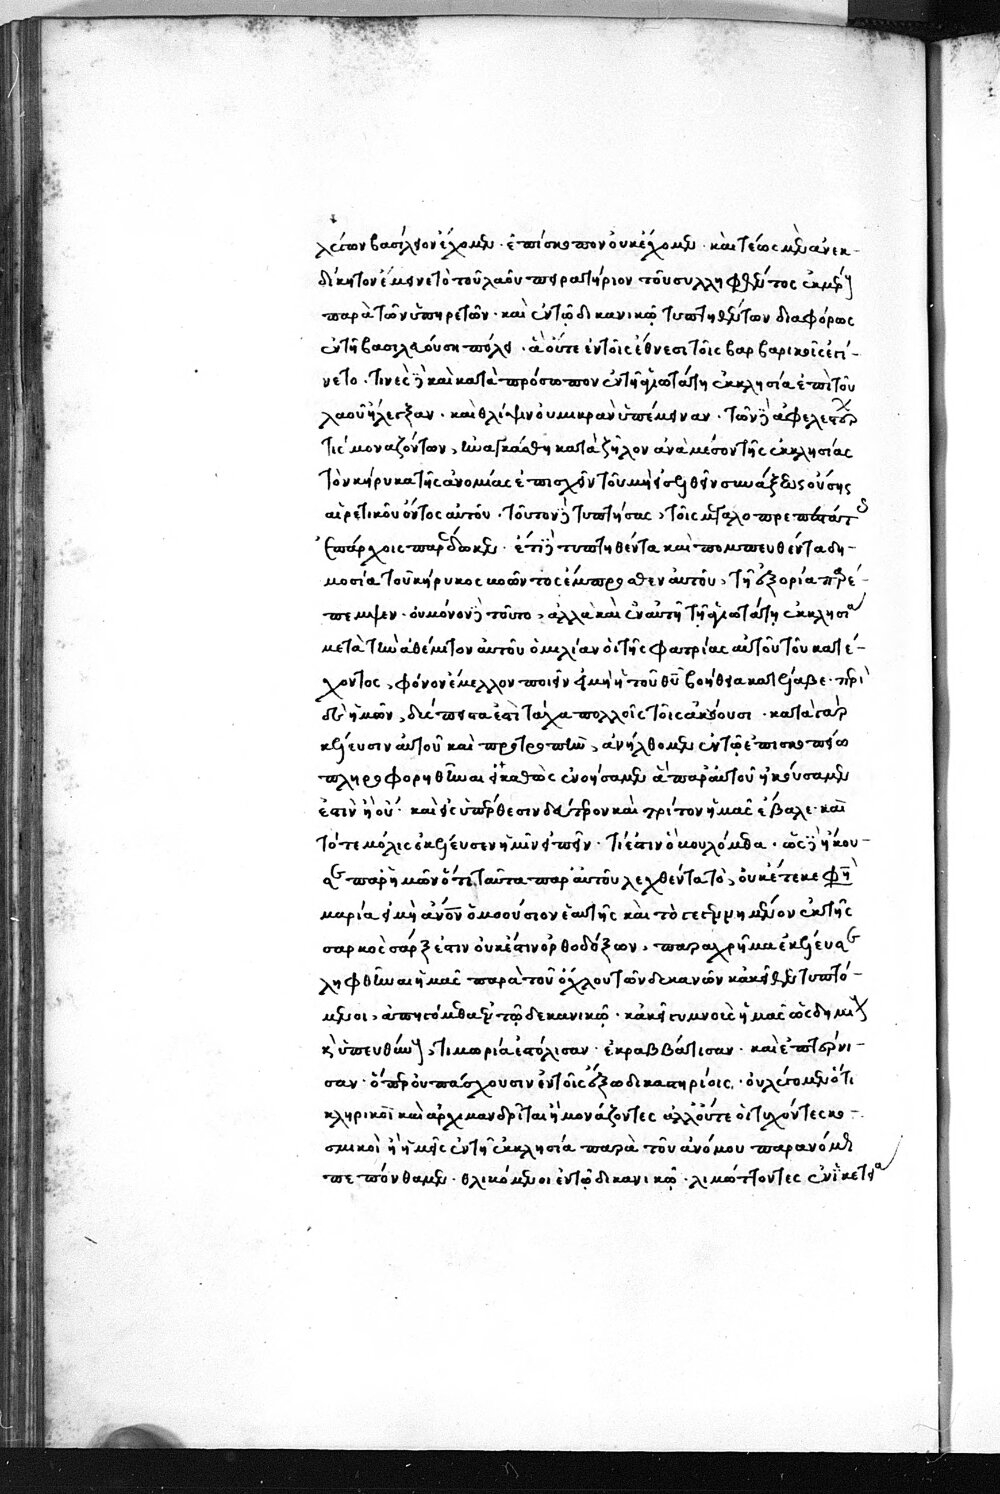 λέων βασίλειον ἔχομεν· ἐπίσκοπον οὐκ ἔχομεν· καὶ τέως μὲν ἀνεκ-
δίκητον ἔμεινε τὸ τοῦ λαοῦ πειρατήριον τοῦ συλληφθέντος
παρὰ τῶν ὑπηρετῶν· καὶ ἐν τῷ δικανικῷ τυπτηθέντων διαφόρως
ἐν τῇ βασιλευούσῃ πόλει· ἃ οὔτε ἐν τοῖς ἔθνεσι τοῖς βαρβαρικοῖς ἐγί-
νετο· τινὲς δὲ καὶ κατὰ πρόσωπον ἐν τῇ ἁγιωτάτῃ ἐκκλησίᾳ ἐπὶ τοῦ
λαοῦ ἤλεγξαν· καὶ θλίψιν οὐ μικρὰν ὑπέμειναν· τῶν δὲ ἀφελεστέρων
τις μοναζόντων, ἠναγκάσθη κατὰ ζῆλον ἀνὰ μέσον τῆς ἐκκλησίας
τὸν κήρυκα τῆς ἀνομίας ἐπισχεῖν τοῦ μὴ εἰσελθεῖν συνάξεως οὔσης
αἱρετικοῦ ὄντος αὐτοῦ· τοῦτον δὲ τυπτήσας, τοῖς μεγαλοπρεπεστάτοις
ἐπάρχοις παρέδωκεν· ἔτι δὲ τυπτηθέντα καὶ πομπευθέντα δη-
μοσίᾳ τοῦ κήρυκος κράζοντος ἔμπροσθεν αὐτοῦ, τῇ ἐξορίᾳ παρέ-
πεμψεν· οὐ μόνον δὲ τοῦτο, ἀλλὰ καὶ ἐν αὐτῇ τῇ ἁγιωτάτῃ ἐκκλησίᾳ
μετὰ τὴν ἀθέμιτον αὐτοῦ ὁμιλίαν οἱ τῆς φατρίας αὐτοῦ τοῦ κατέ-
χοντος, φόνον ἔμελλον ποιεῖν εἰ μὴ ἡ τοῦ θῦ βοήθεια κατέλαβε· περὶ
δὲ ἡμῶν, διέπεισα ἐπὶ τάχα πολλοῖς τοῖς ἀκούουσι· κατὰ γὰρ
κέλευσιν αὐτοῦ καὶ προτροπὴν, ἀνήλθομεν ἐν τῷ ἐπισκοπείῳ
πληροφορηθῆναι εἰ καθὼς ἐνοήσαμεν ἃ παρ' αὐτοῦ ἠκούσαμεν
ἐστὶν ἢ οὔ· καὶ εἰς ὑπέρθεσιν δεύτερον καὶ τρίτον ἡμᾶς ἔβαλε· καὶ
τότε μόλις ἐκέλευσεν ἡμῖν εἰπεῖν· τί ἐστιν ὃ βουλόμεθα· ὡς δὲ ἤκου-
σε παρ' ἡμῶν ὅτι ταῦτα παρ' αὐτοῦ λεχθέντα τὸ, οὐκ ἔτεκε φησὶ ἡ
μαρία εἰ μὴ ἄνον ὁμοούσιον ἑαυτῆς καὶ τὸ γεγεννημένον ἐκ τῆς
σαρκὸς σάρξ ἐστιν οὐκ ἔστιν ὀρθοδόξων, παραχρῆμα ἐκέλευσε
ληφθῆναι ἡμᾶς παρὰ τοῦ ὄχλου τῶν δεκανῶν κἀκεῖθεν τυπτό-
μενοι, ἀπηγόμεθα ἐν τῷ δεκανικῷ· κἀκεῖ γυμνοὺς ἡμᾶς ὡς δημίους
κ ὑπευθύνους, τιμωρίᾳ ἐστύλισαν· ἐκραββάτισαν· καὶ ἐπτέρνι-
σαν· ὅπερ οὐ πάσχουσιν ἐν τοῖς ἔξω δικαστηρίοις, οὐ λέγομεν ὅτι
κληρικοὶ καὶ ἀρχιμανδρῖται ἢ μονάζοντες ἀλλ' οὔτε οἱ τυχόντες κο-
σμικοὶ ἢ ἡμεῖς ἐν τῇ ἐκκλησίᾳ παρὰ τοῦ ἀνόμου παρανόμως
πεπόνθαμεν· θλιβόμενοι ἐν τῷ δικανικῷ· λιμώττοντες